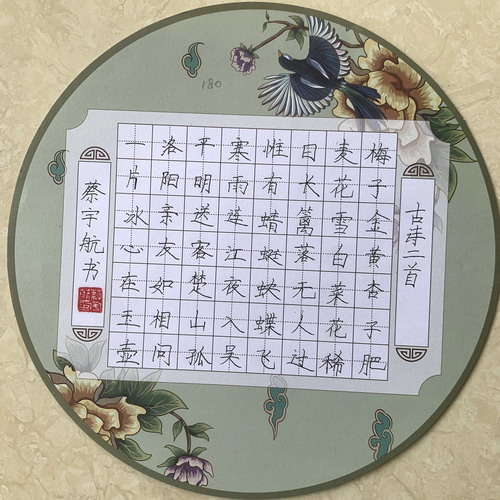 180
古诗二首
梅子金黄杏子肥
麦花雪白菜花稀
日长篱落无人过
惟有蜻蜓蛱蝶飞
寒雨连江夜入吴
平明送客楚山孤
洛阳亲友如相问
一片冰心在玉壶
蔡宇航书